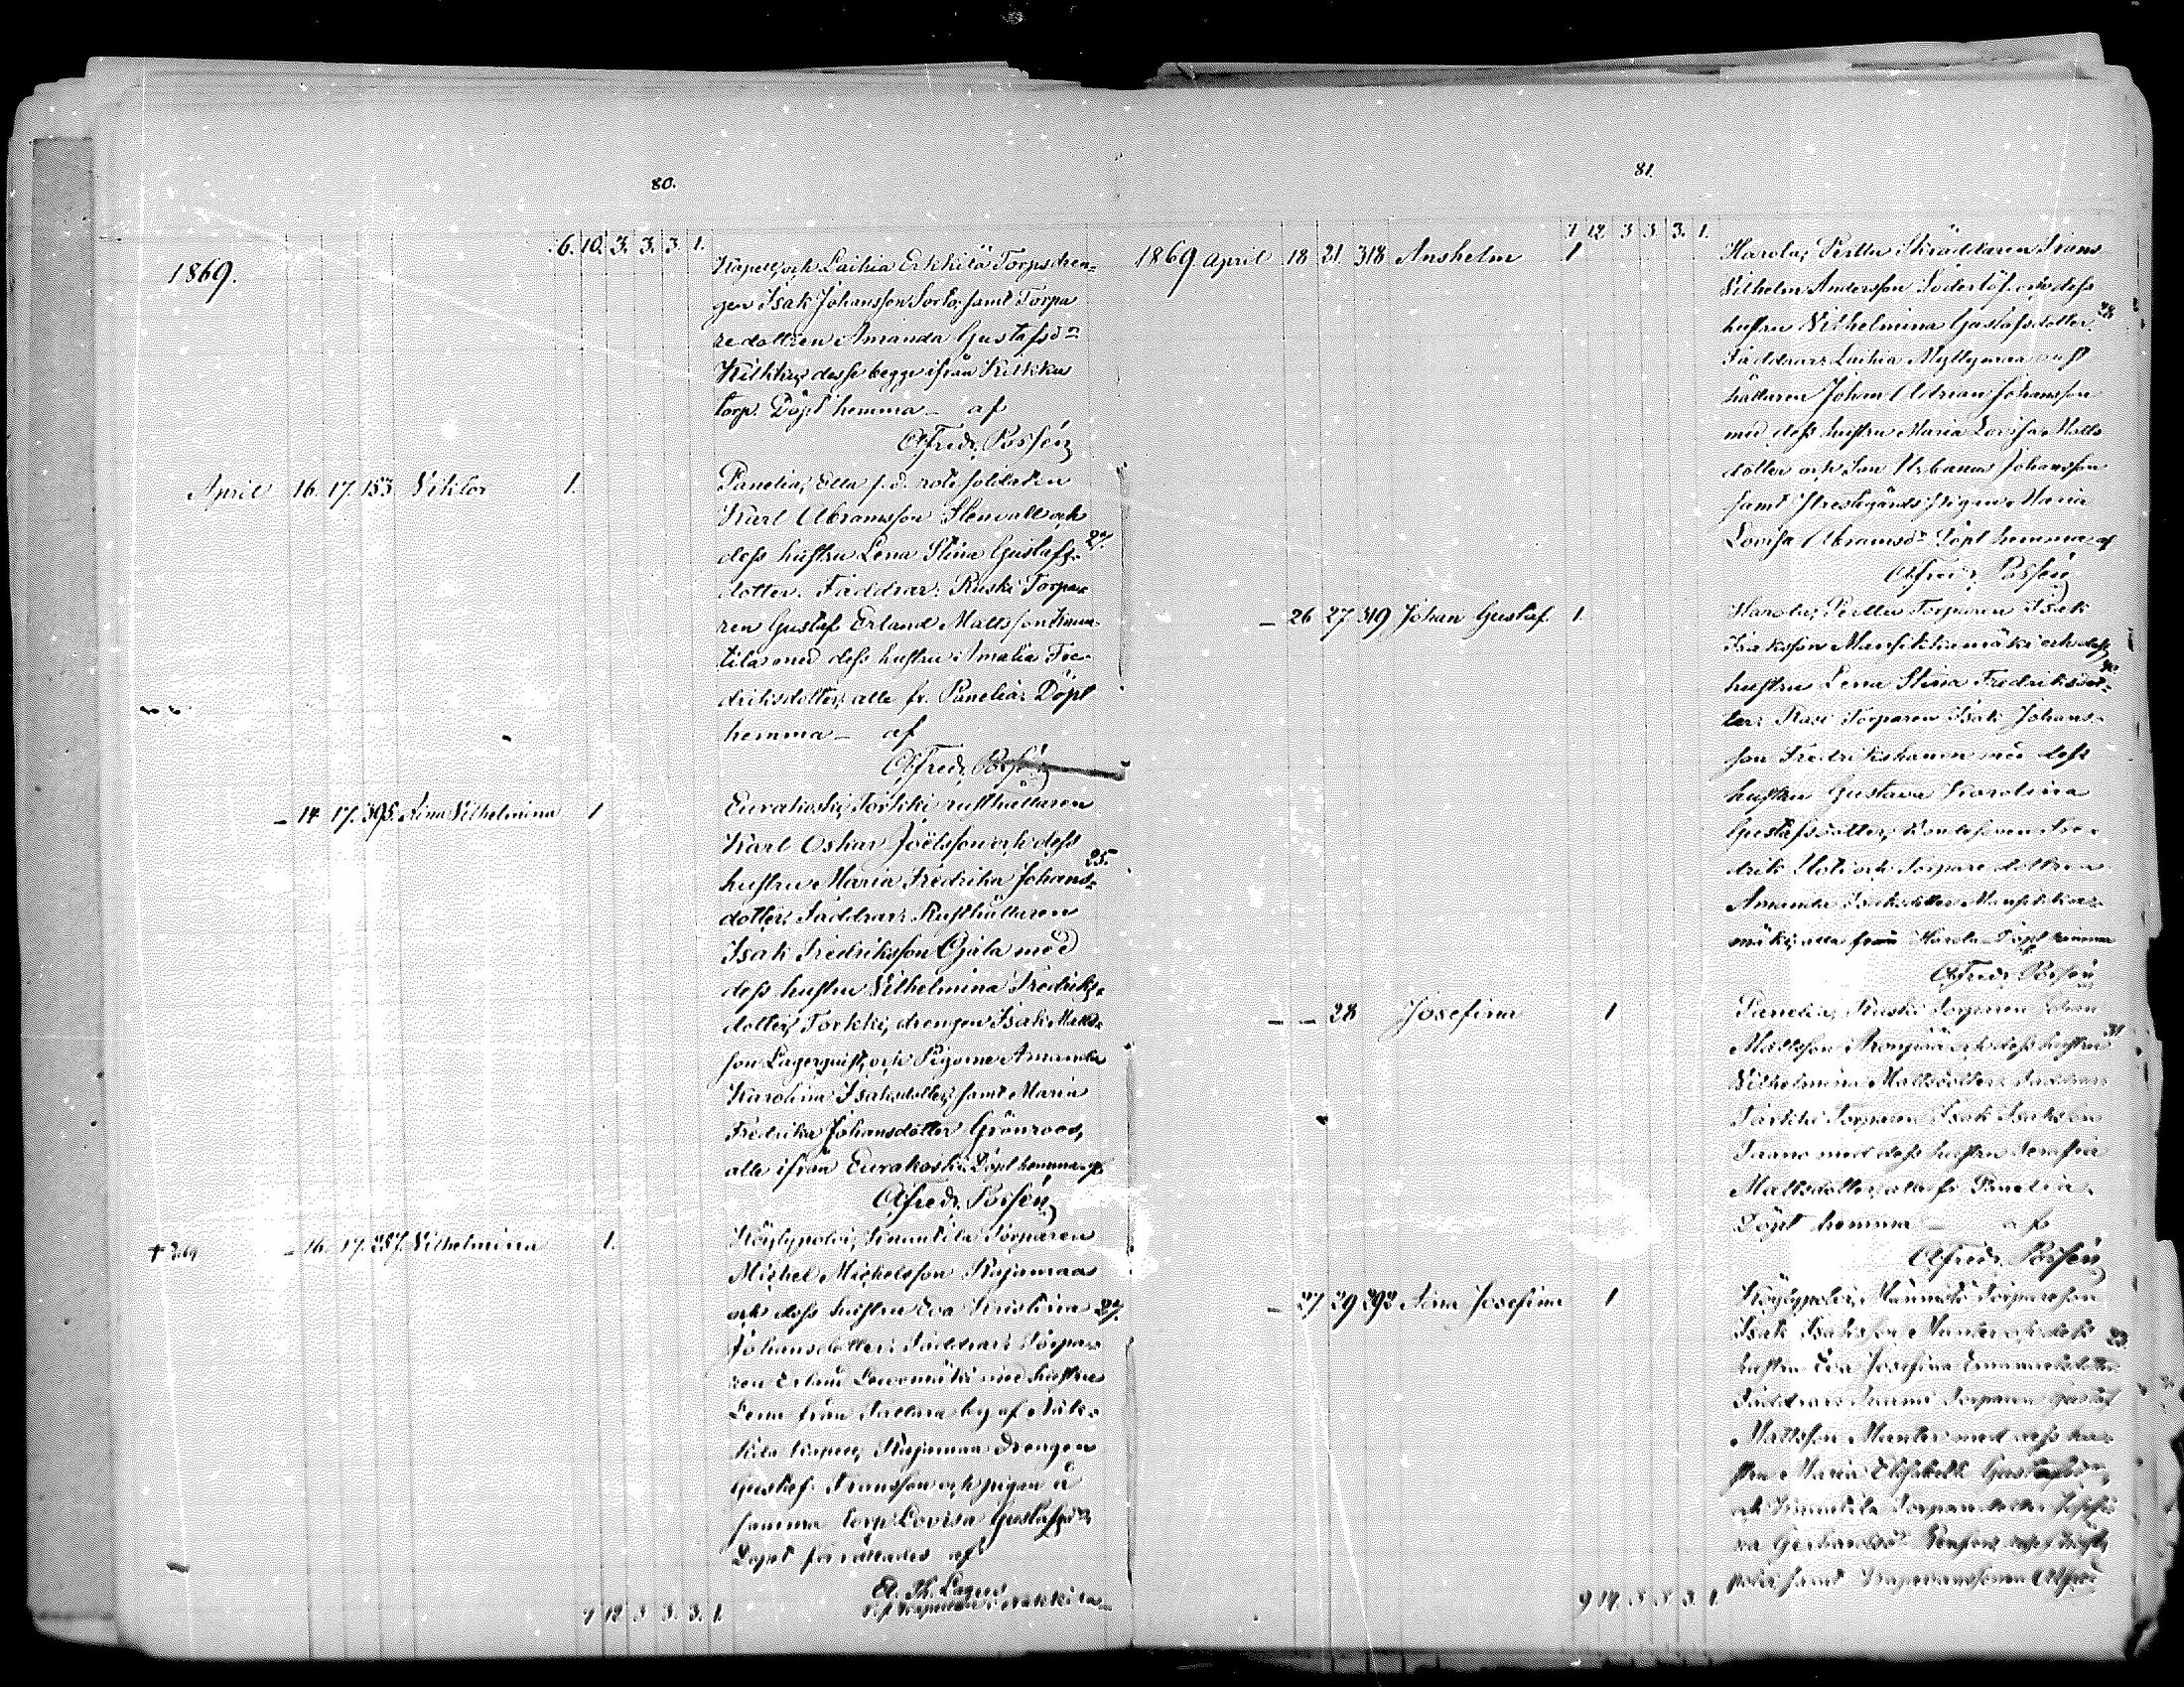 80.
6. 10. 3. 3. 3. 1.
1869.
Kapell, och Laihia Erkkilä Torpsdren-
gen Isak Johansson Sorko, samt Torpa
redottren Amanda Gustafsdr
Kilkku, desse begge ifrån Kilkku
torp. Döpt hemma – af
Alfred Possén
April 16. 17. 153. Viktor 1.
Panelia, Eella f.d. rote soldaten
Karl Abramsson Stenvall och
dess hustru Lena Stina Gustafs- 27.
dotter. Faddrar: Ruski Torpa-
ren Gustaf Erland Mattsson Kimm-
tila med dess hustru Amalia Fre-
driksdotter, alle fr. Panelia. Döpt
hemma – af
Alfred Possén
– 14. 17. 395. Aina Vilhelmina 1
Eurakoski, Torkki rusthållaren
Karl Oskar Joëlsson och dess
hustru Maria Fredrika Johans- 25.
dotter, Faddrar: Rusthållaren
Isak Fredriksson Ojala med
dess hustru Vilhelmina Fredriks-
dotter, Torkki, drengen Isak Matts-
son Lagerquist, och Pigorne Amanda
Karolina Isaksdotter, samt Maria
Fredrika Johansdotter Grönroos,
alle ifrån Eurakoski. Döpt hemma af
Alfred Possén
– 16. 17. 287. Vilhelmina 1.
Köylypolvi, Kinnttila Torparen
Michel Michelsson Rajamaa
och dess hustru Eva Kristina 27.
Johansdotter: Faddrar: Torpa-
ren Erland med hustru
Lena från Sattara by af Nak-
kila Kapell, Rajamaa Drengen
Gustaf Fransson och pigan å
samma torp Lovisa Gustafsdr
Dopet förrättades af
A. Th. Lagus
i Nakkila
7 12 3 3. 3. 1.
81.
7 12 3 3 3. 1.
1869 April 18 21. 318 Anshelm 1
Harola, Perttu Skräddaren Frans
Vilhelm Andersson Söderlöf och dess
hustru Vilhelmina Gustafsdotter, 28
Faddrar: Laihia Myllymaa rust
hållaren Johan Adrian Johansson
med dess hustru Maria Lovisa Matts
dotter och Son Urbanus Johansson
samt Prestgårds pigan Maria
Lovisa Abramsdr Döpt hemma af
Alfred Possén
– 26 27 319 Johan Gustaf 1.
Harola, Perttu Torparen Isak
Isaksson Mansikkamäki och dess
hustru Lena Stina Fredriksdot-
ter: Rasi Torparen Isak Johans-
son Fredrikshamn med dess
hustru Gustava Karolina
Gustafsdotter, Fre-
drik och Torpare dottren
Amanda Isaksdotter Mansikka-
mäki, alla från Harola Döpt hemma
Alfred Possén
– – 28 Josefina 1
Panelia, Ruski Torparen
Mattsson och dess hustru 31
Vilhelmina Mattsdotter: Faddrar
Torparen Isak Isaksson
med dess hustru Serafia
Mattsdotter, alla fr. Panelia.
Döpt hemma – af
Alfred Possén
– 27 29 292 Aina Josefina 1
Köylypolvi, Torpare son
Isak Isaksson och dess 23.
hustru Eva Josefina
Faddrar: Torparen Gustaf
Mattsson med dess hu-
stru Maria Elisabeth Gustafsdr
och Kinnttila
9 14. 3 3 3. 1.